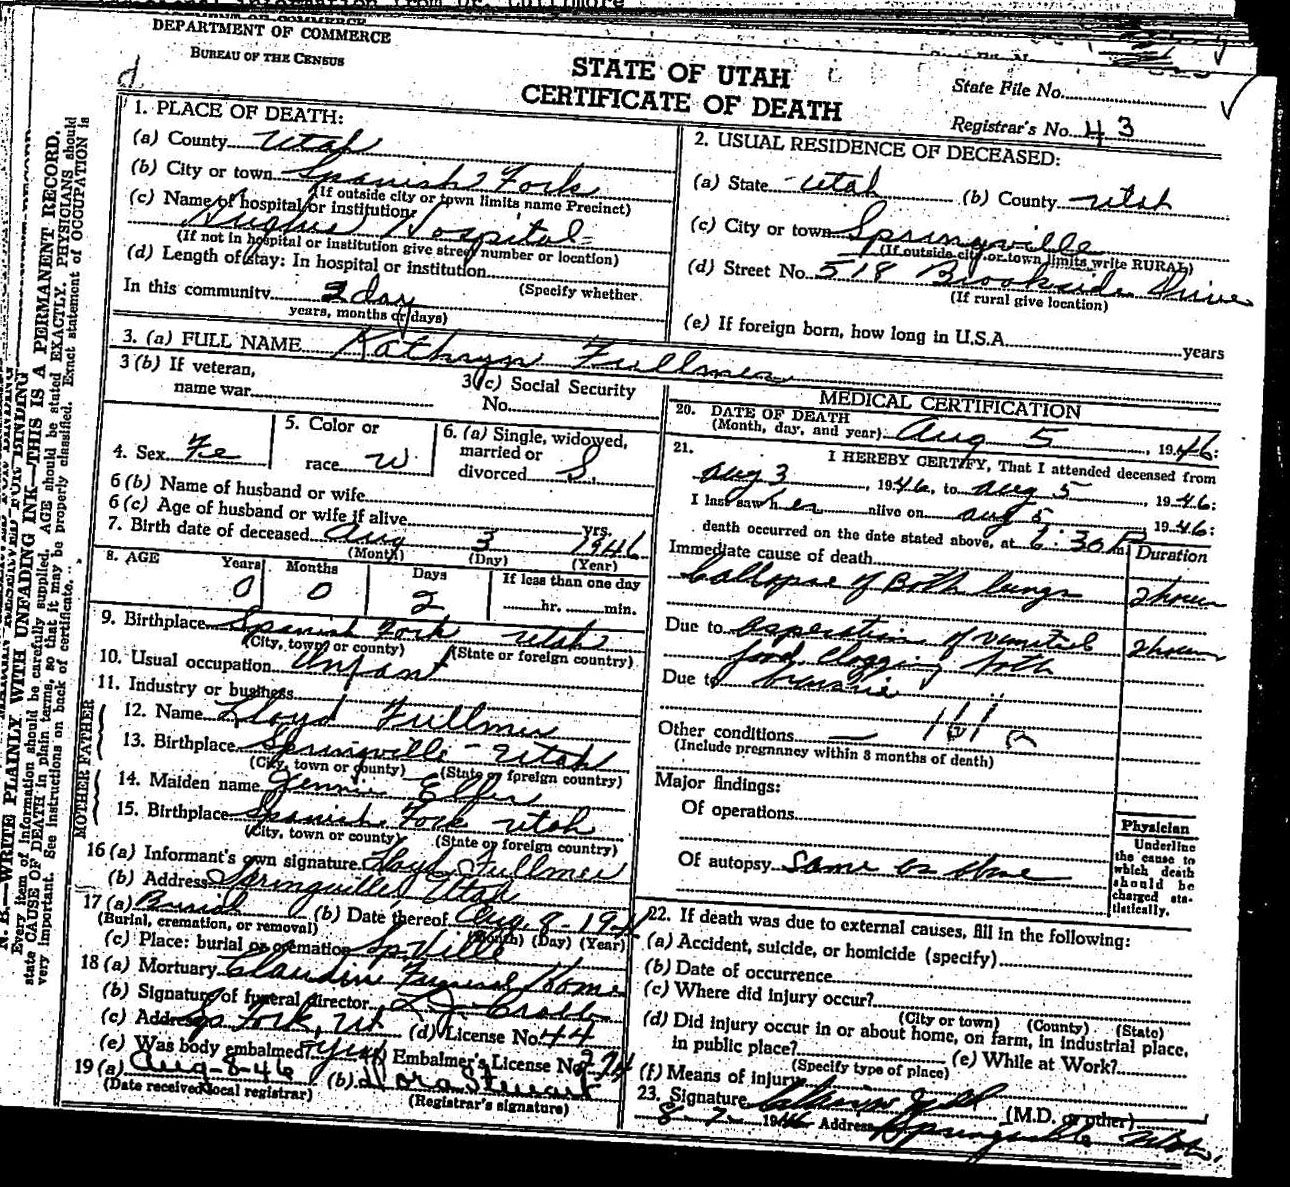 DEPARTMENT OF COMMERCE
BUREAU OF THE CENSUS
STATE OF UTAH
CERTIFICATE OF DEATH
State File No.
Registrar's No. 43
1. PLACE OF DEATH:
(a) County Utah
(b) City or town Spanish Fork
(If outside city or town limits name Precinct)
(c) Name of hospital or institution:
Hughes Hospital
(If not in hospital or institution give street number or location)
(d) Length of stay: In hospital or institution
(Specify whether
In this community 2 day
years, months or days)
2. USUAL RESIDENCE OF DECEASED:
(a) State Utah (b) County Utah
(c) City or town Springville
(If outside city or town limits write RURAL)
(d) Street No. 518 Brookside Drive
(If rural give location)
(e) If foreign born, how long in U.S.A. years
3. (a) FULL NAME Kathryn Fullmer
3 (b) If veteran,
name war
3 (c) Social Security
No.
4. Sex Fe
5. Color or
race W
6. (a) Single, widowed,
married or
divorced S.
6 (b) Name of husband or wife
6 (c) Age of husband or wife if alive yrs.
7. Birth date of deceased Aug 3 1946
(Month) (Day) (Year)
8. AGE Years Months Days If less than one day
0 0 2 hr. min.
9. Birthplace Spanish Fork Utah
(City, town or county) (State or foreign country)
10. Usual occupation Infant
11. Industry or business
FATHER
12. Name Lloyd Fullmer
13. Birthplace Springville - Utah
(City, town or county) (State or foreign country)
MOTHER
14. Maiden name Jennie
15. Birthplace Spanish Fork Utah
(City, town or county) (State or foreign country)
16 (a) Informant's own signature Lloyd Fullmer
(b) Address Springville, Utah
17 (a) Burial (b) Date thereof Aug. 8-19
(Burial, cremation, or removal) (Month) (Day) (Year)
(c) Place: burial or cremation Sp.Ville
18 (a) Mortuary Claudin Funeral Home
(b) Signature of funeral director
(c) Address Sp Fork, Ut (d) License No. 44
(e) Was body embalmed? yes Embalmer's License No. 274
19 (a) Aug-8-46 (b) Nora Stewart
(Date received local registrar) (Registrar's signature)
MEDICAL CERTIFICATION
20. DATE OF DEATH
(Month, day, and year) Aug 5 1946:
21. I HEREBY CERTIFY, That I attended deceased from
Aug 3, 1946, to Aug 5 1946:
I last saw her alive on Aug 5 1946:
death occurred on the date stated above, at 6:30 P
Immediate cause of death Duration
Collapse of Both lungs 2 hours
Due to asperation of vomited 2 hours
food clogging both
Due to
Other conditions —
(Include pregnancy within 3 months of death)
Major findings:
Of operations
Of autopsy Same as above
Physician
Underline
the cause to
which death
should be
charged sta-
tistically.
22. If death was due to external causes, fill in the following:
(a) Accident, suicide, or homicide (specify)
(b) Date of occurrence
(c) Where did injury occur?
(City or town) (County) (State)
(d) Did injury occur in or about home, on farm, in industrial place,
in public place? (e) While at Work?
(Specify type of place)
(f) Means of injury
23. Signature (M.D. or other)
8-7-1946 Address Springville Utah.
N. B.—WRITE PLAINLY WITH UNFADING INK—THIS IS A PERMANENT RECORD.
Every item of information should be carefully supplied. AGE should be stated EXACTLY. PHYSICIANS should
state CAUSE OF DEATH in plain terms, so that it may be properly classified. Exact statement of OCCUPATION is
very important. See instructions on back of certificate.